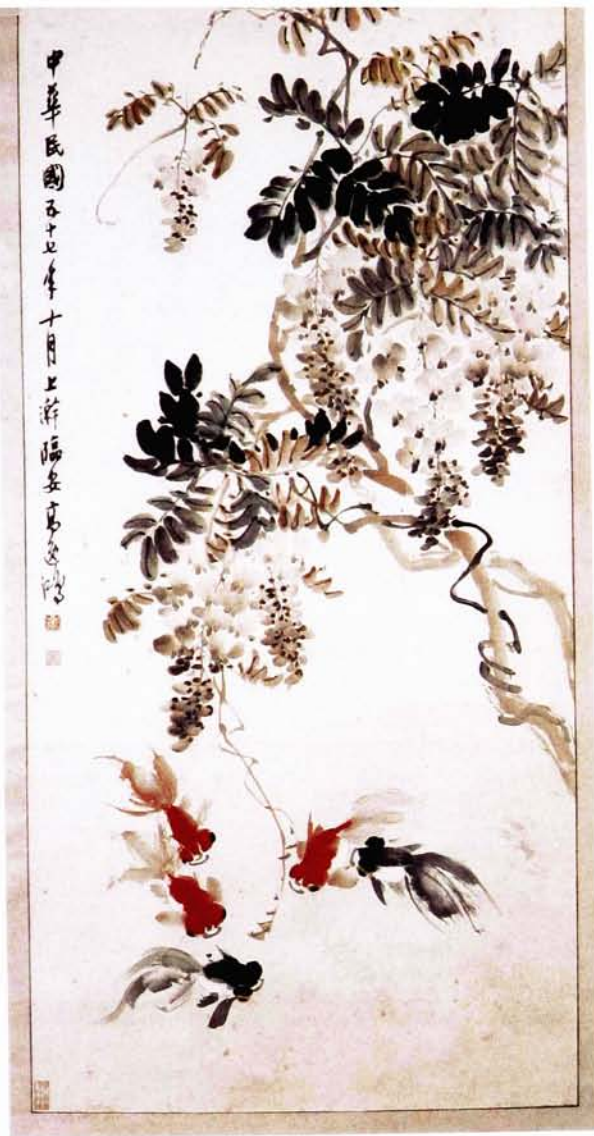 中華民國五十七年十月上澣臨安高逸鴻